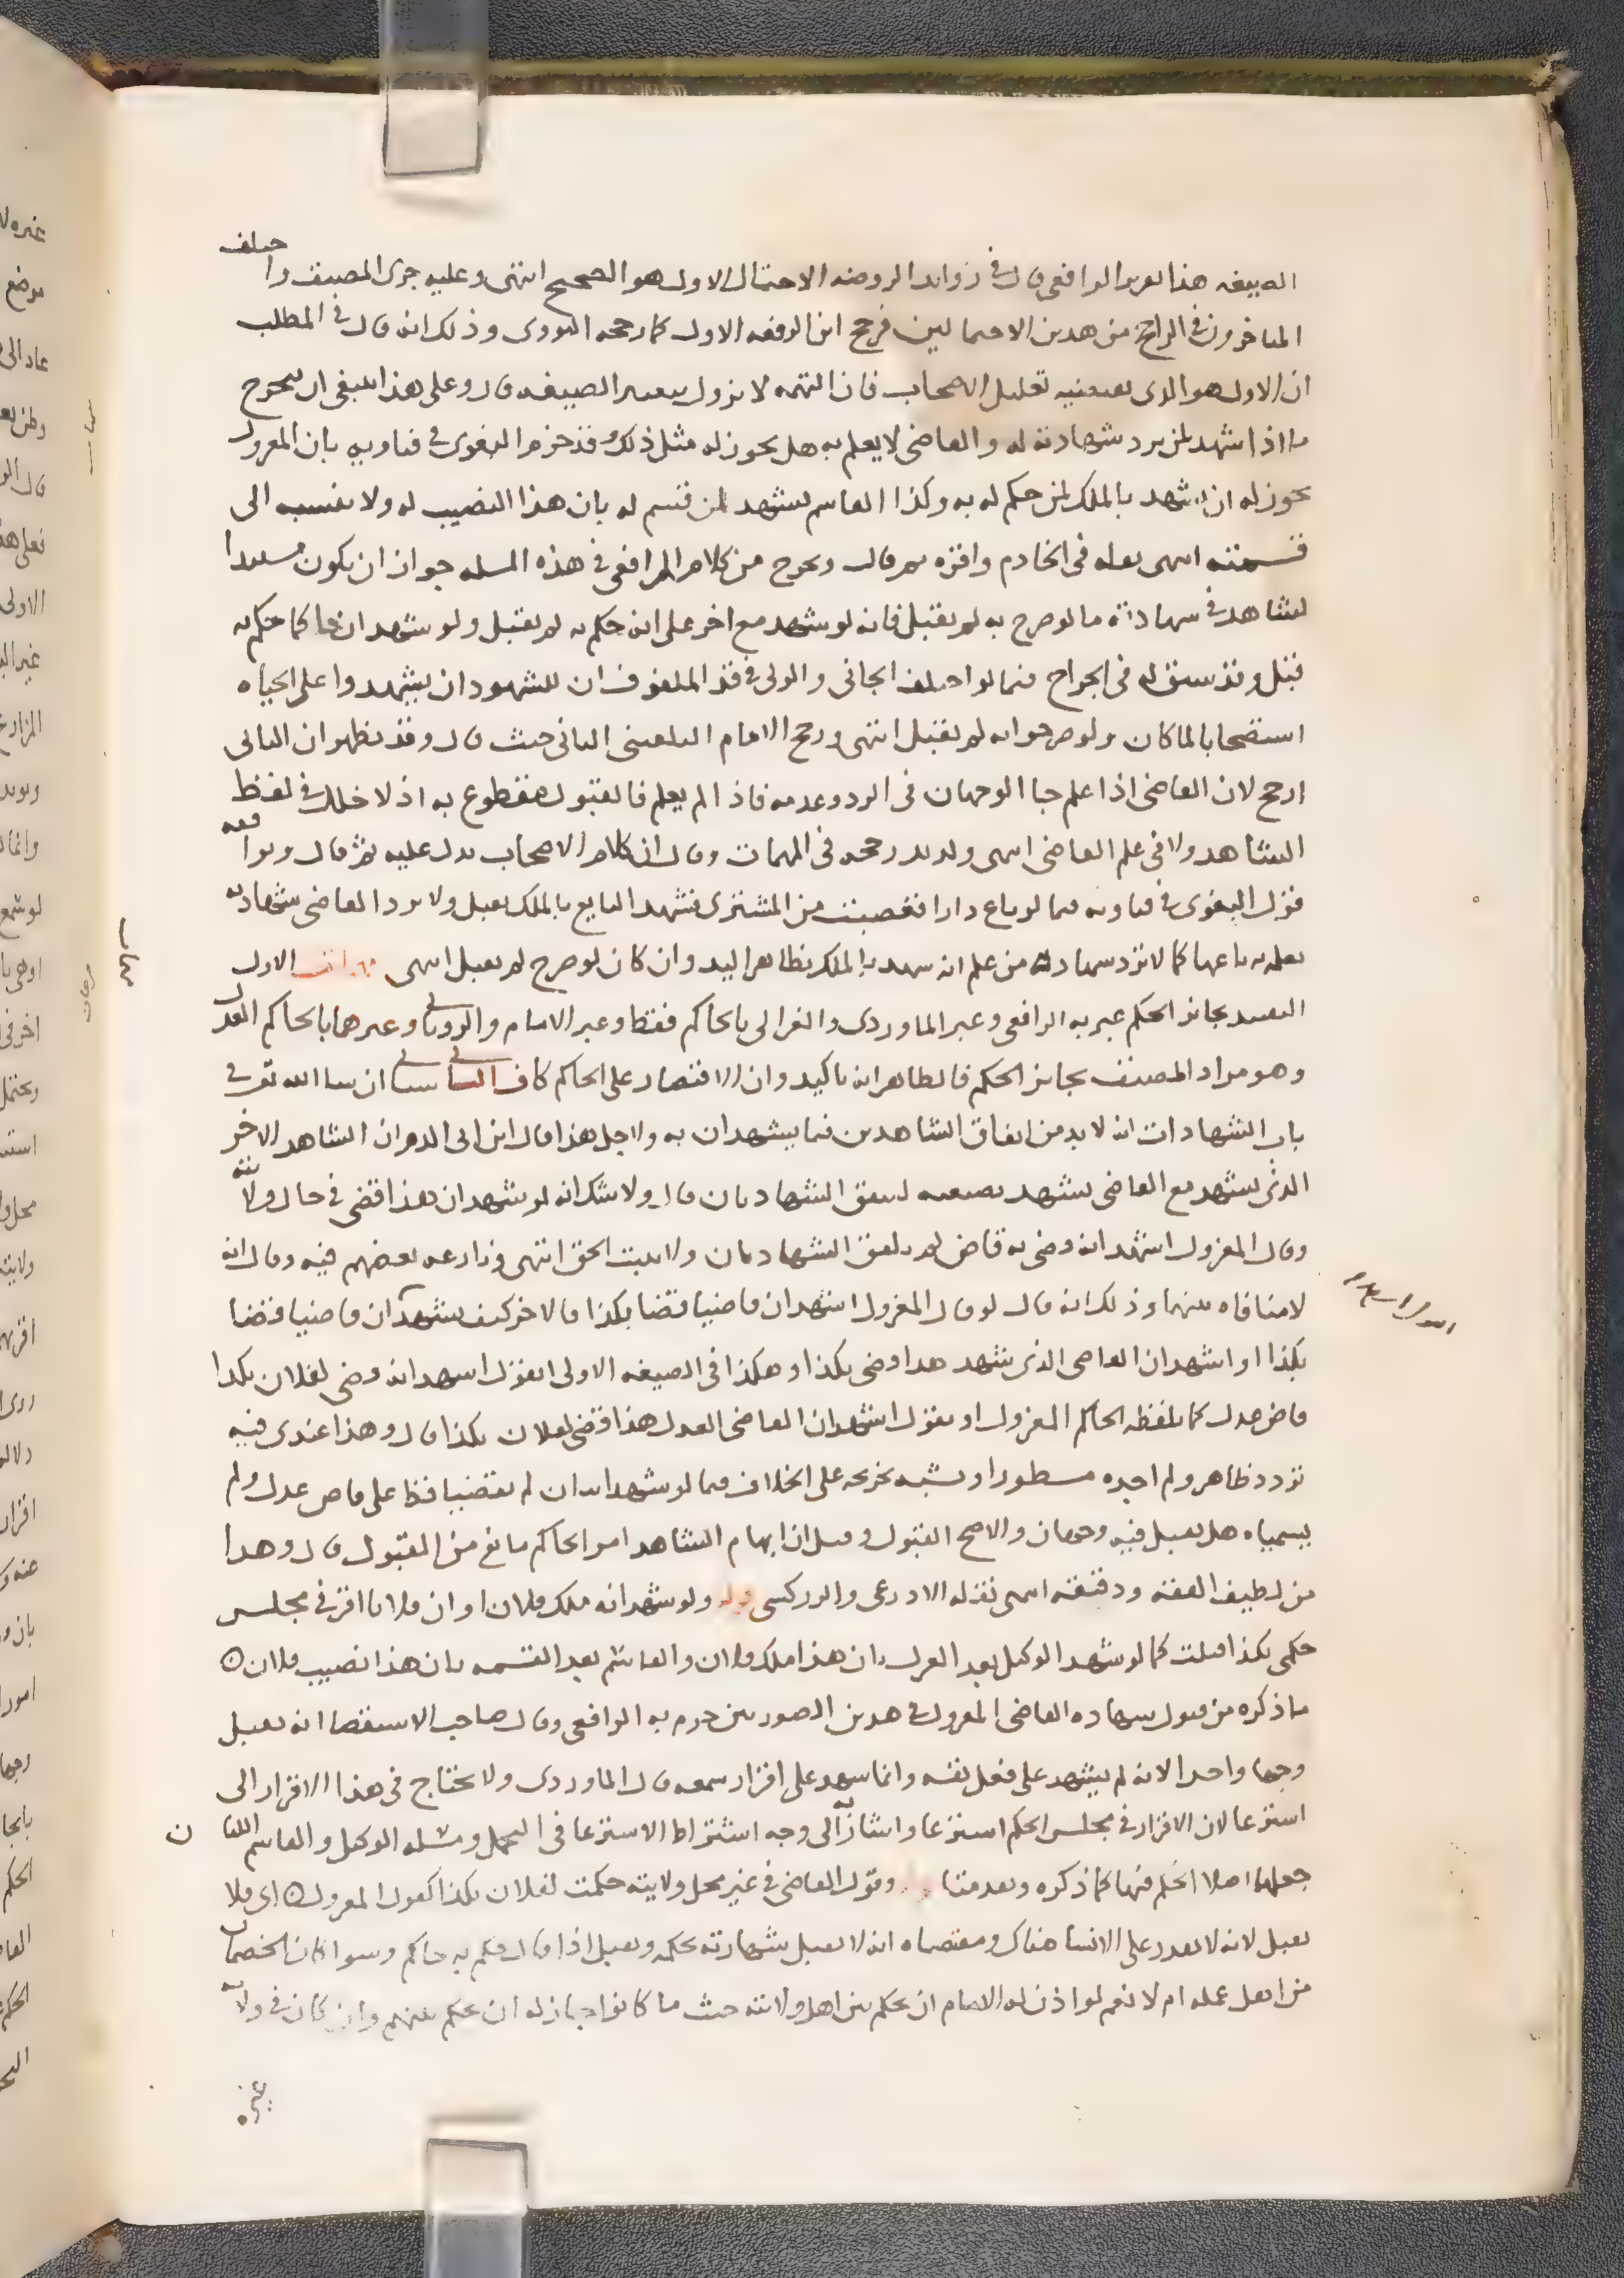 الصيغه هذا تعبير الرافعي قال في زوايد الروضه الاحتمال الاول هو الصحيح انتهى وعليه جرى المصنف واختلف
المتاخرون في الراجح من هذين الاحتمالين فرجح ابن الرفعه الاول كما رجحه النووى وذلك انه قال في المطلب
ان الاول هو الذى يقتضيه تعليل الاصحاب فان التهمه لا تزول بتغيير الصيغه قال وعلى هذا ينبغى ان يتخرج
ما اذا شهد لمن يرد شهادته له والقاضى لا يعلم به هل يجوز له مثل ذلك وقد جزم البغوى في فتاويه بان المعزول
يجوز له ان يشهد بالملك لمن حكم له به وكذا القاسم يشهد لمن قسم له بان هذا النصيب له ولا ينسبه الى
قسمته انتهى نقله في الخادم واقره ثم قال ويخرج من كلام الرافعي في هذه المسله جواز ان يكون مستندا
لشاهد في شهادته ما لو صرح به لم يقبل فانه لو شهد مع اخر على انه حكم به لم يقبل ولو شهد ان حاكما حكم به
قبل وقد سبق له في الجراح فيما لو اختلف الجانى والولى في قد الملفوف ان للشهود ان يشهدوا على الحياه
استصحابا لما كان ولو صرحوا به لم تقبل انتهى ورجح الامام البلقينى الثانى حيث قال وقد يظهر ان الثانى
ارجح لان القاضى اذا علم جا الوجهان في الرد وعدمه فاذا لم يعلم فالقبول مقطوع به اذ لا خلل في لفظ
الشاهد ولا في علم القاضى انتهى رجحه في المهمات وقال ان كلام الاصحاب يدل عليه ثم قال ويوافقه
قول البغوى في فتاويه فيما لو باع دارا فغصبت من المشترى فشهد البايع بالملك يقبل ولا يرد القاضى شهادته
بعلمه به باعها كما لا ترد شهادة من علم انه شهد بالملك بظاهر اليد وان كان لو صرح لم يقبل انتهى الاول
التقييد بجايز الحكم عبر به الرافعى وعبر الماوردى والغزالى بالحاكم فقط وعبر الامام والرويانى وغيرهما بالحاكم العدل
وهو مراد المصنف بجايز الحكم فالظاهر انه تاكيد وان الاقتصار على الحاكم كاف الثانى سياتى ان شا الله تعالى في
باب الشهادات انه لا بد من اتفاق الشاهدين فيما يشهدان به ولاجل هذا قال ابن ابى الدم ان الشاهد الاخر
الذى يشهد مع القاضى يشهد بصيغته لتتفق الشهادتان قال ولا شك انه لو شهد ان هذا قضى في حال ولايته
وقال المعزول اشهد انه قضى به قاض لم تتلفق الشهادتان ولا يثبت الحق انتهى ونازعه بعضهم فيه وقال انه
لا منافاه بينهما وذلك انه قال لو قال المعزول اشهد ان قاضيا قضا بكذا فالاخر كيف يشهد ان قاضيا قضا
بكذا او اشهد ان القاضى الذى شهد هذا قضى بكذا وهكذا في الصيغه الاولى اتقول اشهد انه قضى لفلان بكذا
قاض عدل كما تلفظه الحاكم المعزول او يقول اشهد ان القاضى العدل هذا قضى لفلان بكذا قال وهذا عندى فيه
تردد ظاهر ولم اجده مسطورا ويشبه تخريجه على الخلاف فيما لو شهد قاض عدل ولم
يسمياه هل يقبل فيه وجهان والاصح القبول وقيل ان ابهام الشاهد امر الحاكم مانع من القبول قال وهذا
من لطيف الفقه ودقيقه انتهى نقله الاذرعى والزركشى قوله ولو شهد انه ملك فلان او ان فلانا اقر في مجلس
حكمى بكذا قبلت كما لو شهد الوكيل بعد العزل ان هذا ملك فلان والقاسم بعد القسمه بان هذا نصيب فلان
ما ذكره من قبول شهاده القاضى المعزول في هذين الصورتين جزم به الرافعى وقال صاحب الاستقصا انه يقبل
وجها واحدا لانه لم يشهد على فعل نفسه وانما شهد على اقرار سمعه قال الماوردى ولا يحتاج في هذا الاقرار الى
استرعا لان الاقرار في مجلس الحكم استرعا واشار الى وجه اشتراط الاسترعا في التحمل ومسله الوكيل والقاسم اللتان
جعلهما اصلا الحكم فيهما كما ذكره وقول القاضى في غير محل ولايته حكمت لفلان بكذا كقول المعزول اى فلا
يقبل لانه لا يقدر على الانشا هناك ومقتضاه انه لا يقبل شهادته بحكمه ويقبل اذا قال حكم به حاكم وسوا كان الخصمان
من اهل عمله ام لا نعم لو اذن له الامام ان يحكم بين اهل ولايته حيث ما كانوا جاز له ان يحكم بينهم وان كان في ولاية
غيره